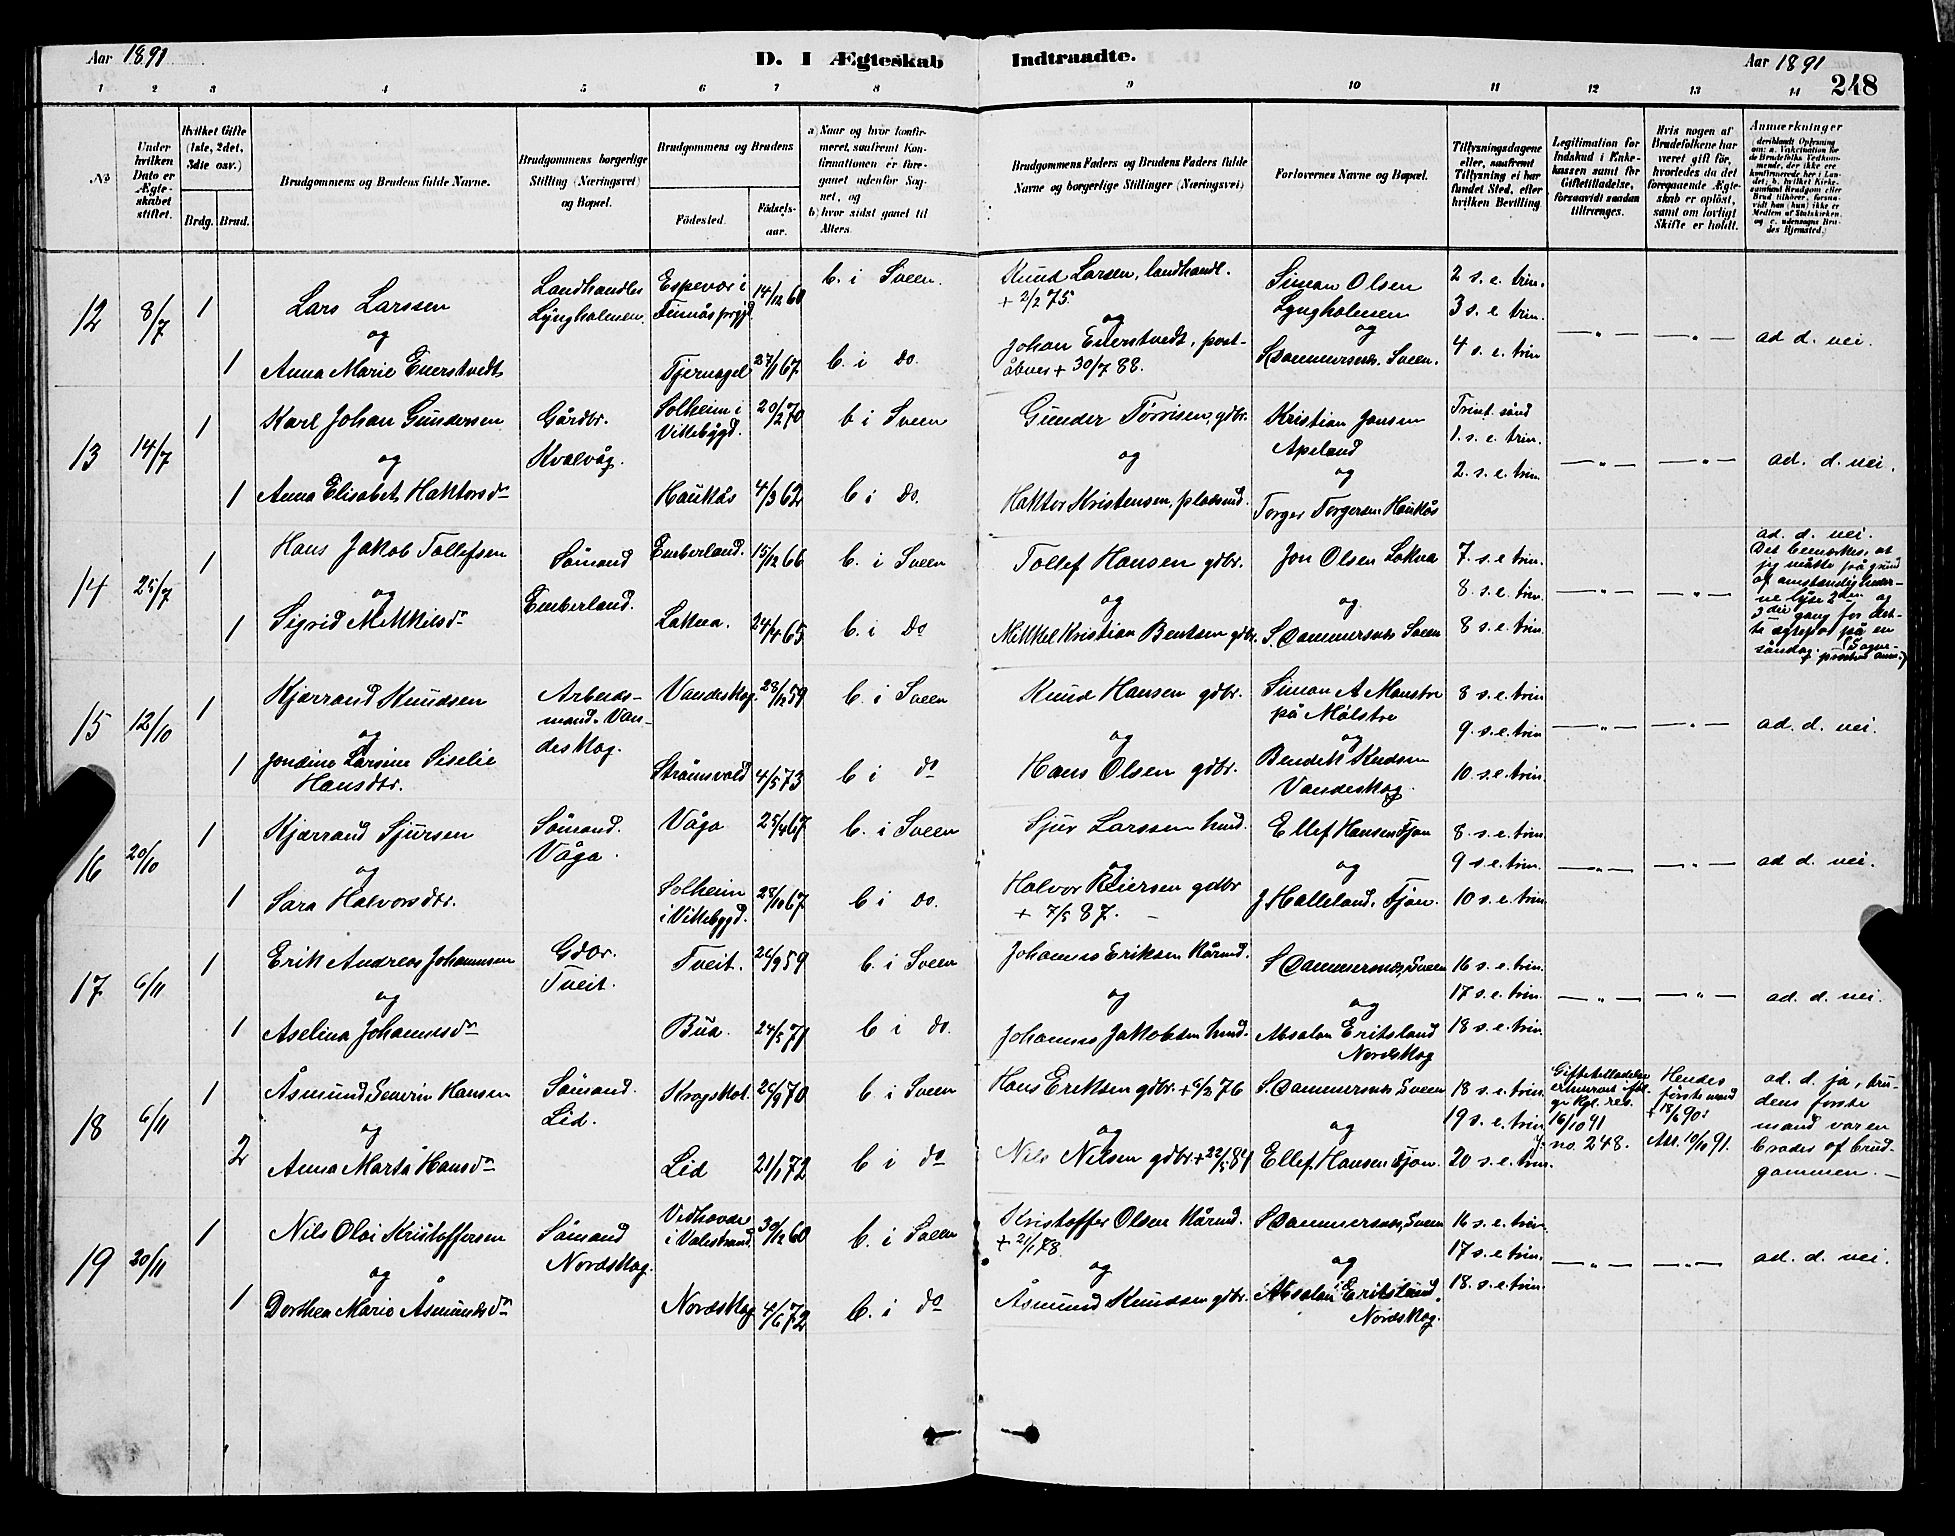 Aar 1891
D. I Ægteskab Indtraadte.
Aar 1891
248
1 2 3 4 5 6 7 8 9 10 11 12 13 14
No
Under hvilken Dato er Ægteskabet stiftet.
Hvilket Gifte (1ste, 2det, 3die osv.)
Brdg. Brud.
Brudgommens og Brudens fulde Navne.
Brudgommens borgerlige Stilling (Næringsvei) og Bopæl.
Brudgommens og Brudens
Fødested. Fødselsaar.
a) Naar og hvor konfirmeret, saafremt Konfirmationen er foregaaet udenfor Sognet, og
b) hvor sidst gaaet til Alters.
Brudgommens Faders og Brudens Faders fulde Navne og borgerlige Stillinger (Næringsvei)
Forlovernes Navne og Bopæl.
Tillysningsdagene eller, saafremt Tillysning ei har fundet Sted, efter hvilken Bevilling
Legitimation for Indskud i Enkekassen samt for Giftetilladelse, forsaavidt saadan tiltrænges.
Hvis nogen af Brudefolkene har været gift før, hvorledes da det foregaaende Ægteskab er opløst, samt om lovligt Skifte er holdt.
Anmærkninger
12 8/7 1 Lars Larssen Landhandler Lyngholmen. Espevær i Finnås prgjd. 14/12 60 b. i Sveen. Knud Larsen, landhandl. + 2/2 75. Simon Olsen Lyngholmen 2 s. e. trin. 3 s. e. trin.
og og og
1 Anna Marie Enerstvedt Tjernagel 27/1 67 b. i do. Johan Enerstvedt, poståbner + 30/7 88. Sveen. 4 s. e. trin — " — — " — ad d. nei.
13 14/7 1 Karl Johan Gundersen Gårdbr. Kvalvåg. Solheim i Vikebygd. 20/2 70 b i Sveen Gunder Torrisen, gdbr. Kristian Jensen Apeland Trint. sönd 1. s. e. trin.
og og og
1 Anna Elisabet Haktorsdr Haukås 4/3 62 b i do. Haktor Kristensen, pladsmd. Torger Torgersen Haukås 2. s. e. trin — " — — " — ad. d. nei.
14 25/7 1 Hans Jakob Tollefsen Sömand Emberland. Emberland. 15/12 66 b. i Sveen Tollef Hansen gdbr. Jon Olsen Lokna 7. s. e. trin. 8. s. e. trin.
og og og
1 Sigrid Mikkilsdr Lokna. 24/4 65 b. i do Mikkel Kristian Bentsen gdbr. Sveen 8 s. e. trin — " — — " —
ad. d. nei.
Det bemærkes, at
jeg måtte på grund
af omstændighederne
lyse 2den og
3die gang for dette
ægtepar på en
söndag.
15 12/10 1 Kjærrand Knudsen Arbeidsmand. Vandeskog. Vandeskog. 28/12 59 b. i Sveen Knud Hansen gdbr. Simon A Mølstre på Mølstre 8 s. e. trin 9. s. e. trin
og og og
1 Jondine Larsine Siselie Hansdtr. Strömsvold 4/5 73 b i do Hans Olsen gdbr. Bendik Knudsen Vandeskog. 10. s. e. trin. — " — — " — ad. d. nei.
16 20/10 1 Kjærrand Sjursen Sömand. Våga. Våga 25/4 67 b. i Sveen Sjur Larssen husmd. Ellef Hansen Tjon 8. s. e. trin. 9 s. e. trin.
og og og
1 Sara Halvorsdtr. Solheim i Vikebygd. 28/10 67 b i do. Halvor Reiersen gdbr + 7/5 87. — J Halleland, Fjon. 10 s. e. trin. — " — — " — ad d. nei.
17 6/11 1 Erik Andreas Johannesen Gdbr. Tveit. Tveit. 26/9 59 b. i Sveen Johannes Eriksen Kårmd. Sveen 16 s. e. trin. 17 s. e. trin.
og og og
1 Aselina Johannesdr Bua. 24/5 71 b i do. Johannes Jakobsen husmd. Absalon Eritsland Nordskog 18 s. e. trin — " — — " — ad. d. nei.
18 6/11 1 Åsmund Severin Hansen Sömand. Lid. Krogskot. 26/9 70 b i Sveen Hans Eriksen gdbr. + 6/2 76 Sveen 18 s. e. trin. 19 s. e. trin
og og og
2 Anna Marta Hansdr Lid 21/1 72 b i do Nils Nilsen gdbr. + 22/5 84 Ellef Hansen Fjon. 20 s. e. trin.
Giftetilladelse
gr Kgl. res.
16/10 91
no. 248.
Hendes
förste mand
+ 18/6 90.
Att. 10/10 91.
ad. d. ja, brudens
förste
mand var en
broder af brudgommen. —
19 20/11 1 Nils Olai Kristoffersen Sömand Nordskog. Vedhovde i Valestrand 30/12 60 b. i Sveen Kristoffer Olsen Kårmd. + 21/1 78. Sveen 16 s. e. trin. 17 s. e. trin.
og og og
1 Dorthea Marie Åsmundsdr Nordskog 4/6 72 b. i do Åsmund Knudsen gdbr. Absalon Eritsland, Nordskog. 18. s. e. trin — " — — " — ad. d. nei.